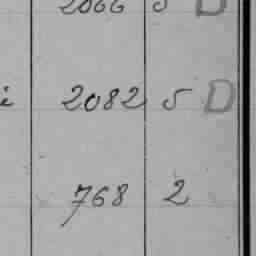 2066 5 D
i 2082 5 D
768 2